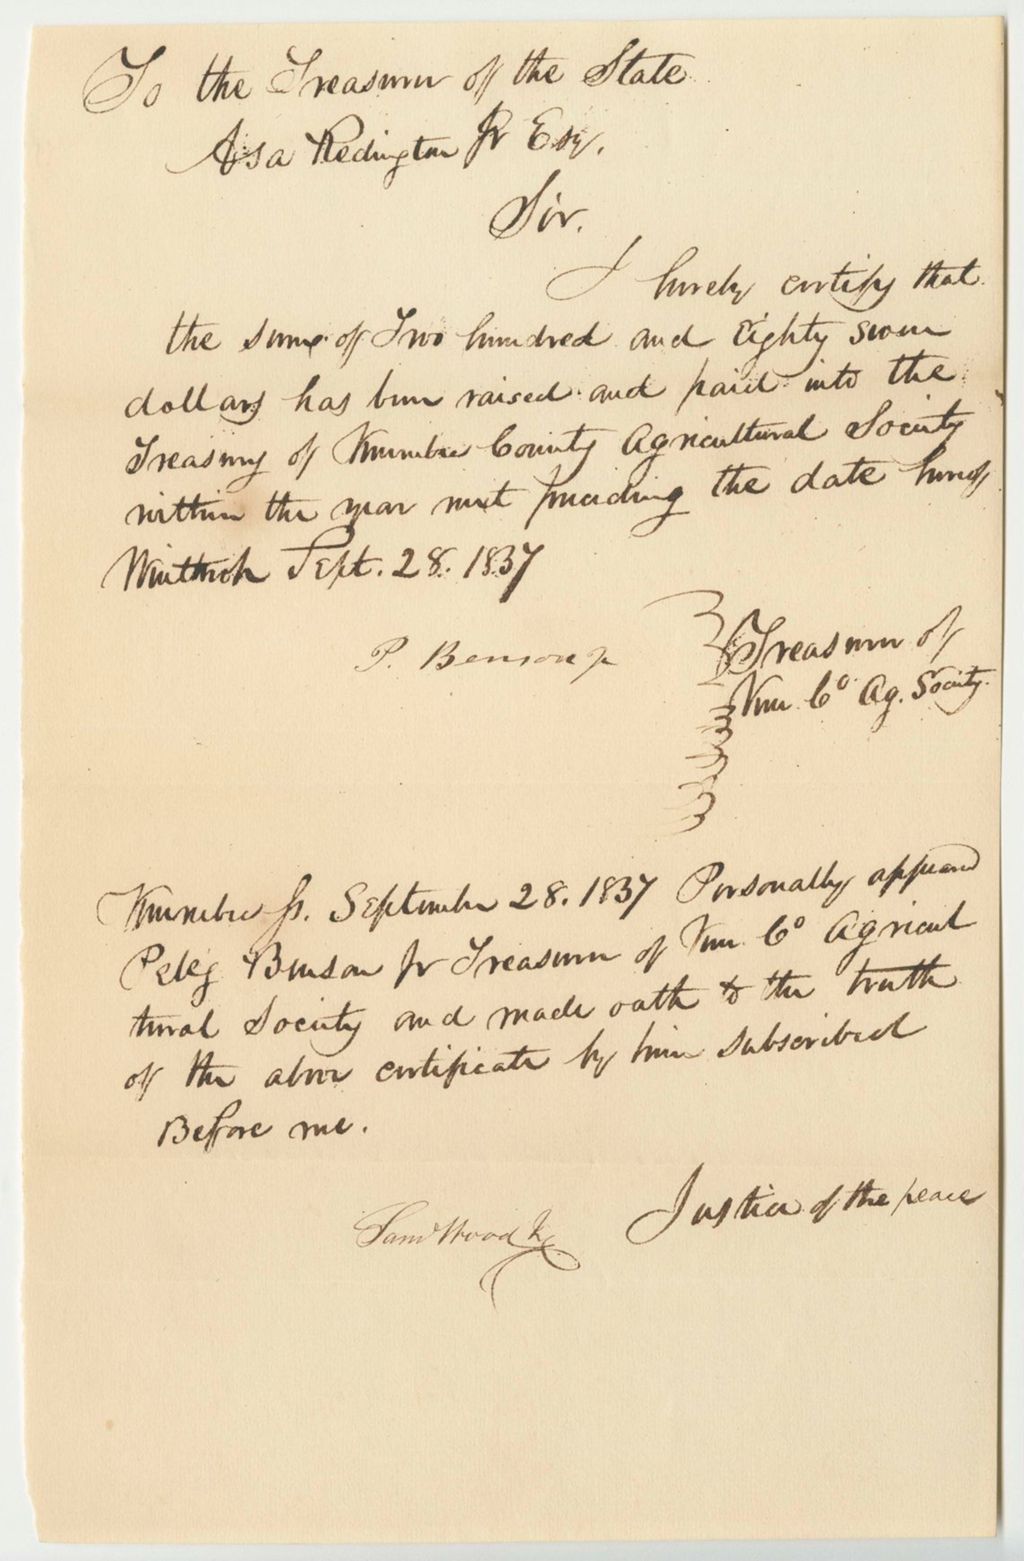 To the Treasurer of the State
Asa Redington Jr Esq.
Sir.
I hereby certify that
the sume of Two hundred and Eighty seven
dollars has been raised and paid into the
Treasury of Kennebec County Agricultural Society
within the year next preceding the date hereof
Winthrop Sept. 28. 1837
P. Benson Jr
Treasurer of
Ken. Co. Ag. Society.
Kennebec Ss. September 28. 1837 Personally appeared
Peleg Benson Jr Treasurer of Ken. Co Agricul
tural Society and made oath to the truth
of the above certificate by him subscribed
Before me.
Saml Wood Jr
Justice of the peace